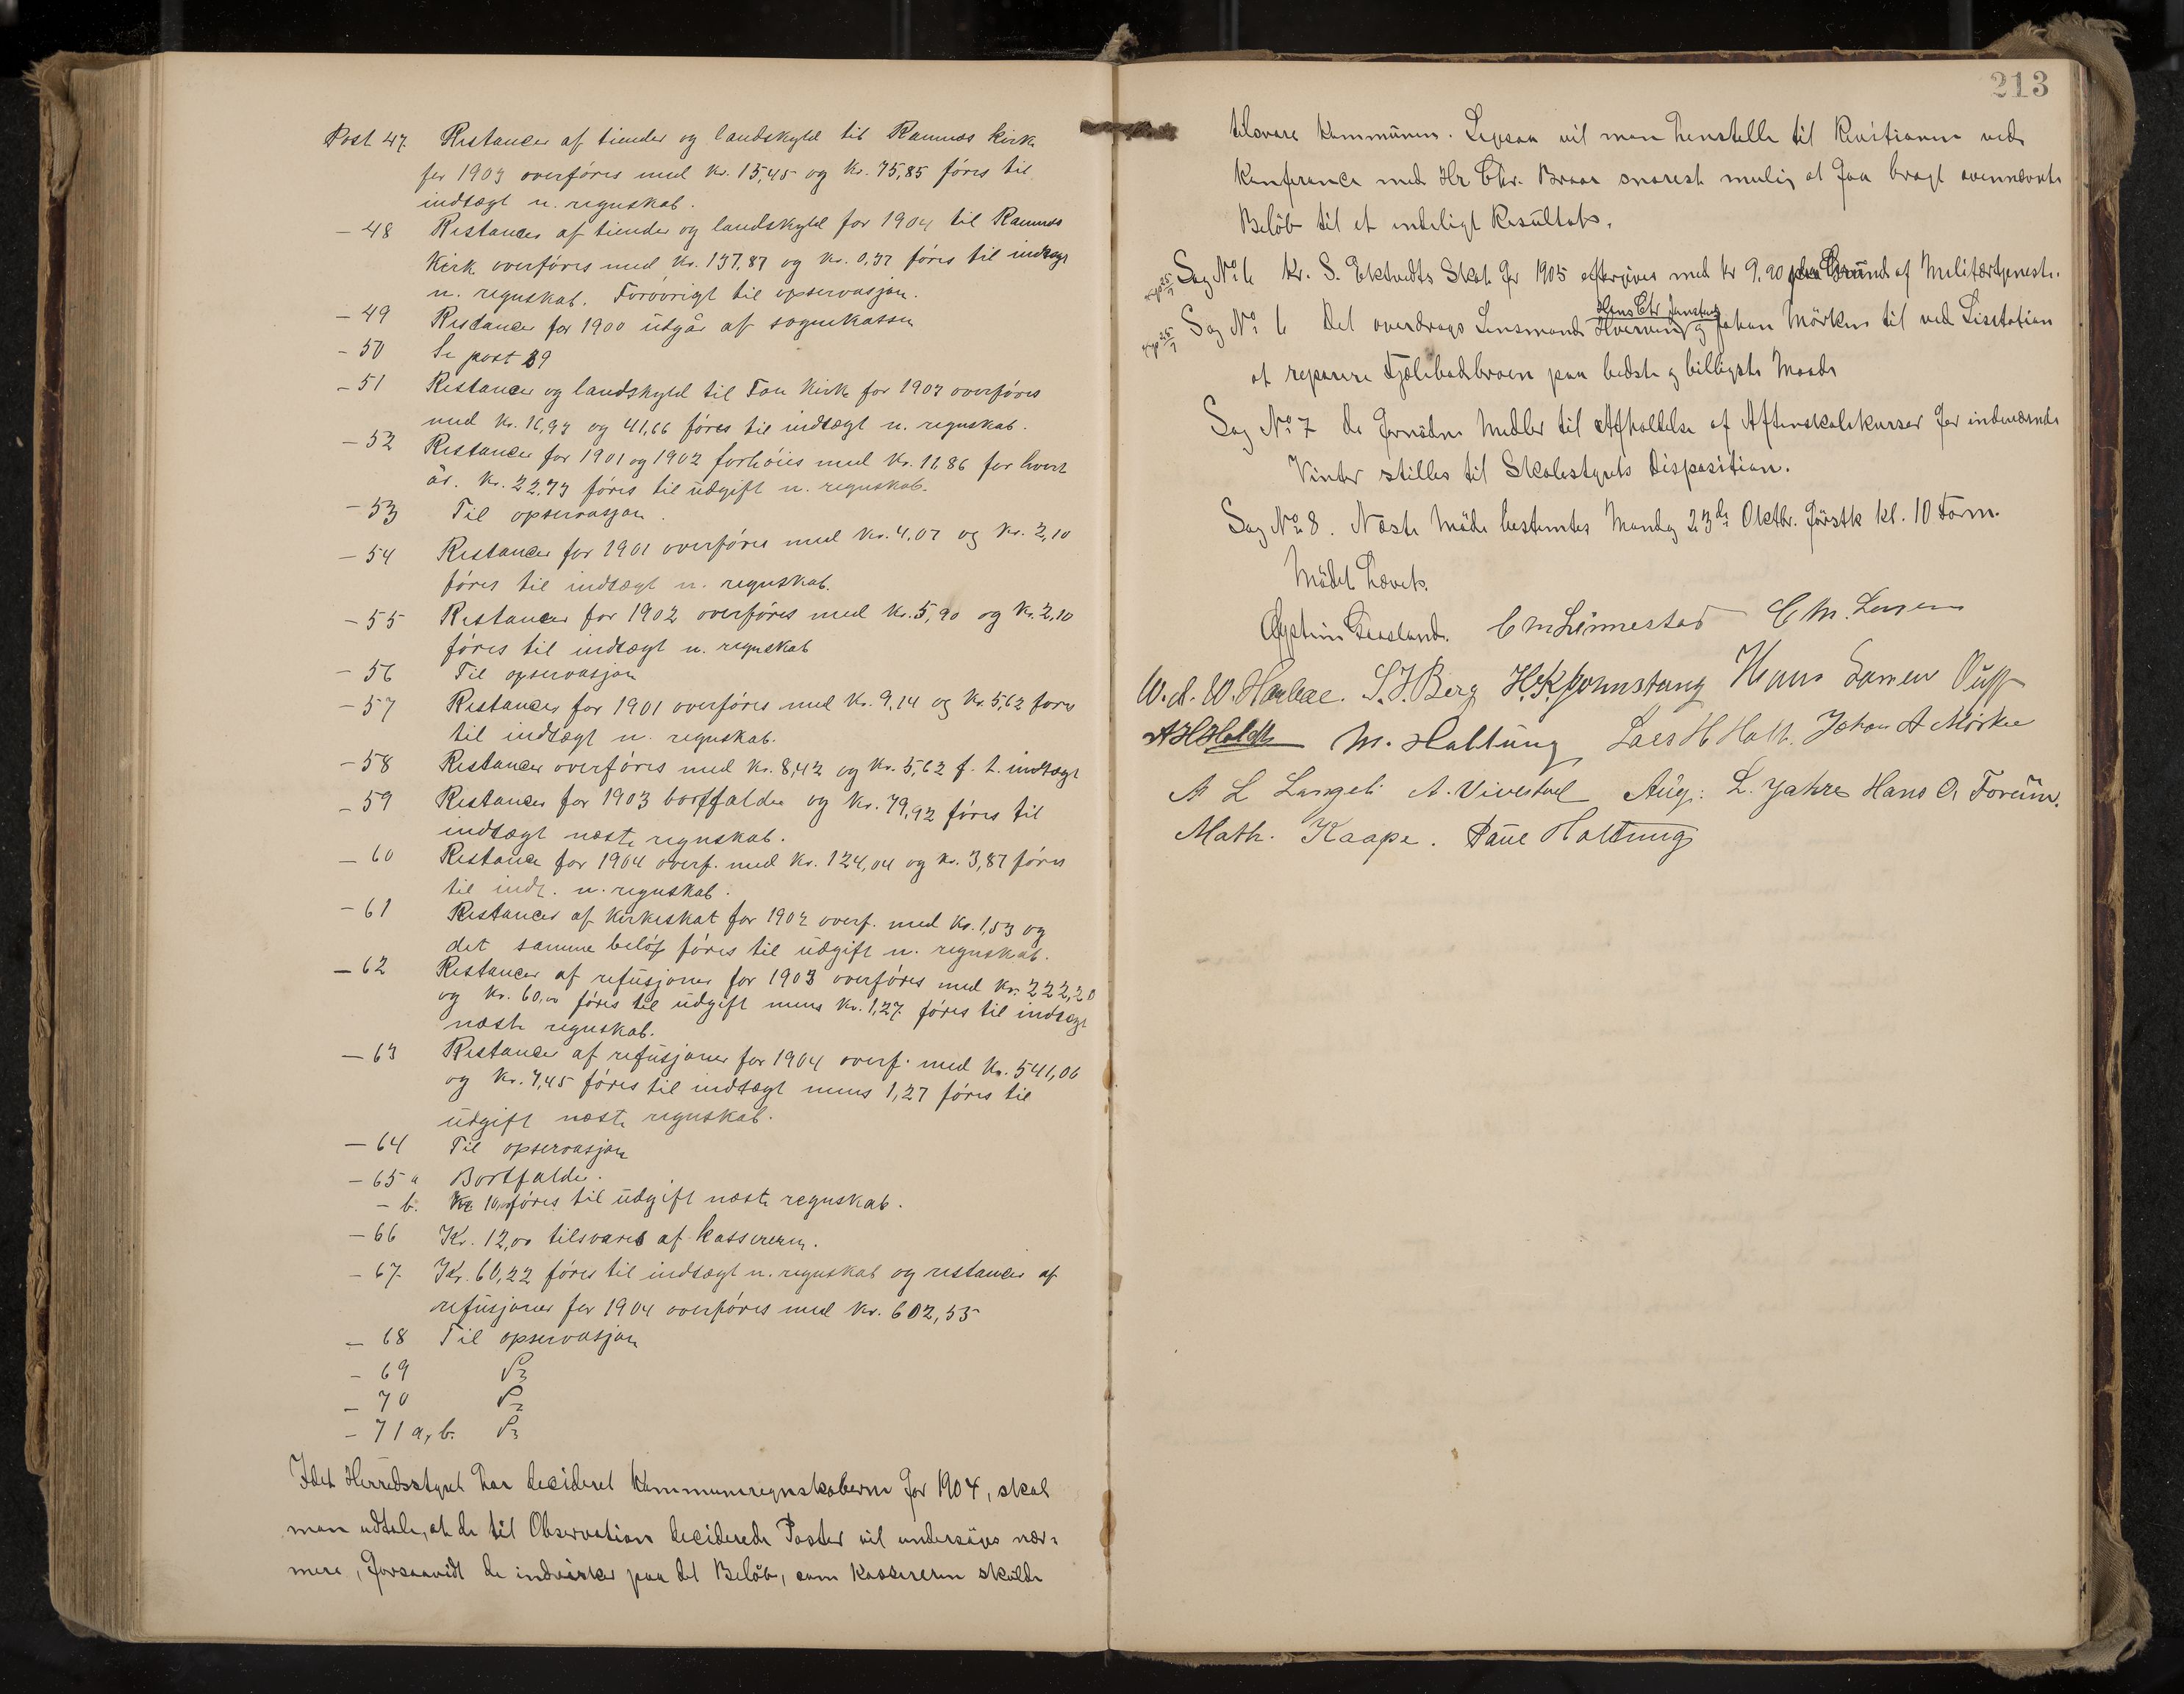 Post 47. Restancer af tiender og landskyld til Ramnæs kirke
for 1903 overføres med kr. 15,45 og kr. 75,85 føres til
indtægt n. regnskab.
— 48 Restancer af tiender og landskyld for 1904 til Ramnæs
Kirk overføres med kr. 137,87 og kr. 0,37 føres til indtægt
n. regnskab. Forøvrigt til opservasjon.
— 49 Restancer for 1900 udgår af sognekassen
— 50 Se post 39
— 51 Restancer og landskyld til Fon Kirke for 1903 overføres
med kr. 16,93 og 41,66 føres til indtægt n. regnskab.
— 52 Restancer for 1901 og 1902 forhøies med kr. 11,86 for hvert
år. kr. 22,73 føres til udgift n. regnskab.
— 53 Til opservasjon.
— 54 Restancer for 1901 overføres med kr. 4,07 og kr. 2,10
føres til indtægt n. regnskab.
— 55 Restancer for 1902 overføres med kr. 5,90 og kr. 2,10
føres til indtægt n. regnskab
— 56 Til opservasjon
— 57 Restancer for 1901 overføres med kr. 9,14 og kr. 5,62 føres
til indtægt n. regnskab.
— 58 Restancer overføres med kr. 8,42 og kr. 5,62 f. t. indtægt
— 59 Restancer for 1903 bortfalder og kr. 79,92 føres til
indtægt næste regnskab.
— 60 Restance for 1904 overf. med kr. 124,04 og kr. 3,87 føres
til indt. n. regnskab.
— 61 Restancer af kirkeskat for 1902 overf. med kr. 1,53 og
det samme beløp føres til udgift n. regnskab.
— 62 Restancer af refusjoner for 1903 overføres med kr. 222,20
og kr. 60,00 føres til udgift mens kr. 1,27 føres til indtægt
næste regnskab.
— 63 Restancer af refusjoner for 1904 overf. med kr. 541,06
og kr. 7,45 føres til indtægt mens 1,27 føres til
udgift næste regnskab.
— 64 Til opservasjon
— 65 a Bortfalder.
— b. Kr 10,00 føres til udgift næste regnskab.
— 66 Kr. 12,00 tilsvares af kassereren.
— 67 Kr. 60,22 føres til indtægt n. regnskab og restancer af
refusjoner for 1904 overføres med kr. 602,55
— 68 Til opservasjon
— 69
— 70
— 71 a, b.
Idet Herredsstyret har decideret Kommuneregnskaberne for 1904, skal
man udtale, at de til Observation deciderede Poster vil undersøges nær-
mere, forsaavidt de indvirker paa det Beløb, som Kassereren skulde
213
tilsvare Kommunen. Ligesaa vil man henstille til Revisionen ved
Konferance med Hr Chr. Braar snarest mulig at faa bragt ovennævnte
Beløb til et endeligt Resultat.
Sag No 6 Kr. S. Ektvedts Skat for 1905 eftergives med kr 9,90 paa Grund af Militærtjeneste.
Hans Chr Jonstang
Sag No 6 Det overdrages Lensmand Hvervin og Johan Mørken til ved Lisitation
at reparere Fjælebadbroen paa bedste og billigste Maade
Sag No 7 De fornødne Midler til Afholdelse af Aftenskolekurser for indeværende
Vinter stilles til Skolestyrets Disposition.
Sag No 8. Næste Møde bestemtes Mandag 23de Oktbr. førstk kl. 10 Form.
Mødet hævet.
Øystein Graaland. C M Linnestad C M. Larsen
W. A. W. Harbæe. S. J. Berg H. K. Jonnstang Hans Larsen Ruff
A H Holdt M. Haltung Lars H Holt. Johan A Mørken
A L Langeli A. Vivestad Aug. L. Jahre Hans A Forum.
Math. Kaape. Paul Haltung